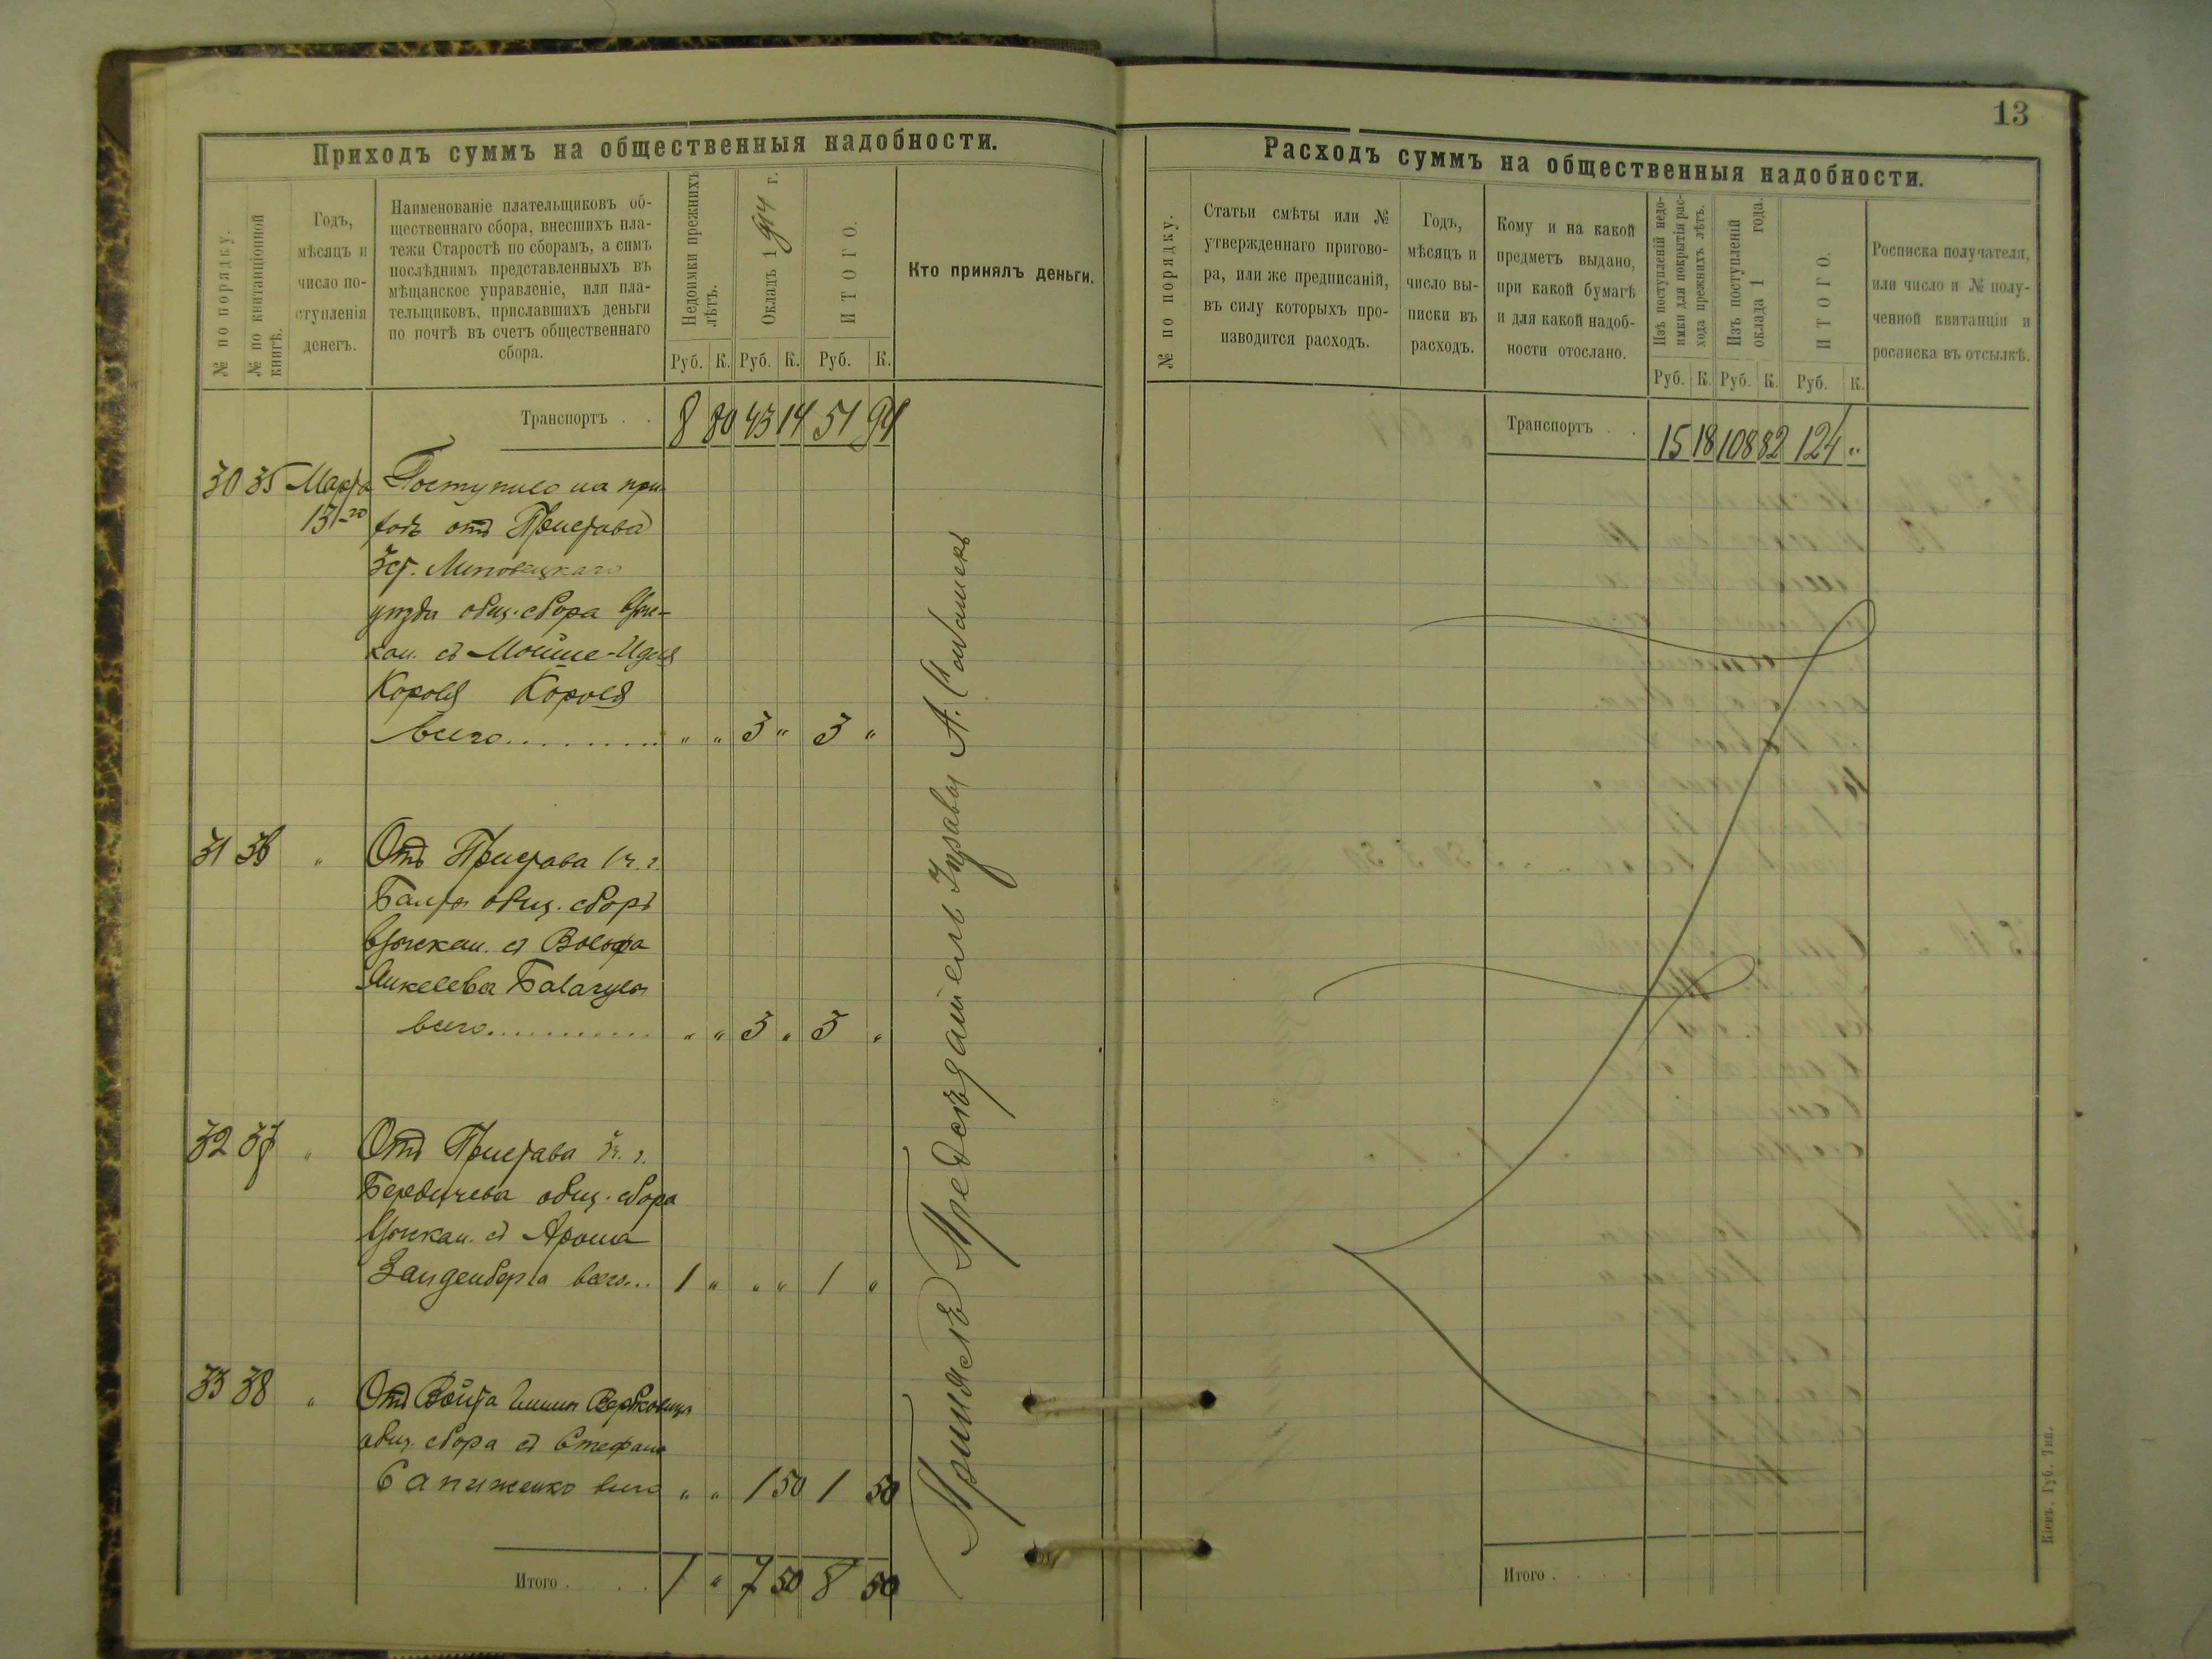 13
Приходъ суммъ на общественныя надобности.
№ по порядку.
№ по квитанціонной книгѣ.
Годъ,
мѣсяцъ и
число по-
ступленія
денегъ.
Наименованіе плательщиковъ об-
щественнаго сбора, внесшихъ пла-
тежи Старостѣ по сборамъ, а симъ
послѣднимъ представленныхъ въ
мѣщанское управленіе, или пла-
тельщиковъ, приславшихъ деньги
по почтѣ въ счетъ общественнаго
сбора.
Недоимки прежнихъ
лѣтъ.
Окладъ 1914 г.
ИТОГО.
Кто принялъ деньги.
Руб. К. Руб. К. Руб. К.
Транспортъ . . 8 80 43 14 51 94
30 35 Марта Поступило на при-
13-го ходъ отъ Пристава
3 ст. Липовецкаго
уѣзда общ. сбора взы-
кан. съ Мойше-
Короля Короля
всего............ " " 3 " 3 "
31 36 " Отъ Пристава 1 ч. г.
Балты общ. сбора
взыскан. съ Вольфа
Янкелева
всего............ " " 3 " 3 "
32 37 " Отъ Пристава 3 ч. г.
Бердичева общ. сбора
взыскан. съ Арона
Занденберга всего... 1 " " " 1 "
33 38 " Отъ Войта
общ. сбора съ Стефана
Сапиженко всего " " 1 50 1 50
Итого . . . . 1 " 7 50 8 50
Принялъ Предсѣдатель Управы А.
Расходъ суммъ на общественныя надобности.
№ по порядку.
Статьи смѣты или №
утвержденнаго пригово-
ра, или же предписаній,
въ силу которыхъ про-
изводится расходъ.
Годъ,
мѣсяцъ и
число вы-
писки въ
расходъ.
Кому и на какой
предметъ выдано,
при какой бумагѣ
и для какой надоб-
ности отослано.
Изъ поступленій недо-
имки для покрытія рас-
хода прежнихъ лѣтъ.
Изъ поступленій
оклада 1 года.
ИТОГО.
Росписка получателя,
или число и № полу-
ченной квитанціи и
росписка въ отсылкѣ.
Руб. К. Руб. К. Руб. К.
Транспортъ . . 15 18 108 82 124 "
Итого . . . .
Кіевъ, Губ. Тип.